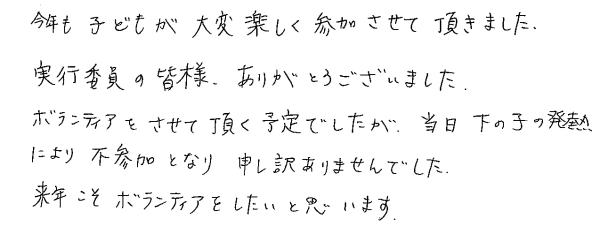 今年も子どもが大変楽しく参加させて頂きました.
実行委員の皆様、ありがとうございました.
ボランティアをさせて頂く予定でしたが、当日下の子の発熱
により不参加となり申し訳ありませんでした.
来年こそボランティアをしたいと思います.